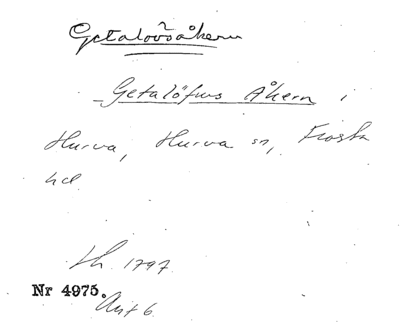 Getalovsåkern
Getalöfws Åkern i
Hurva, Hurva sn, Frosta
hd
Lh. 1797.
Nr 4975.
Akt 6.